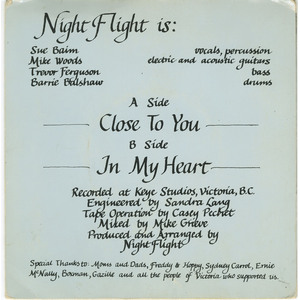 Night Flight is:
Sue Baim vocals, percussion
Mike Woods electric and acoustic guitars
Trevor Ferguson bass
Barrie drums
A Side
Close To You
B Side
In My Heart
Recorded at Keye Studios, Victoria, B.C.
Engineered by Sandra Lang
Tape Operation by Casey Pechet
Mixed by Mike Grieve
Produced and Arranged by
Night Flight
Special Thanks to: Moms and Dads, Freddy & Hoppy, Sydney Carrol, Ernie
McNally, Bowman, Gazille and all the people of Victoria who supported us.